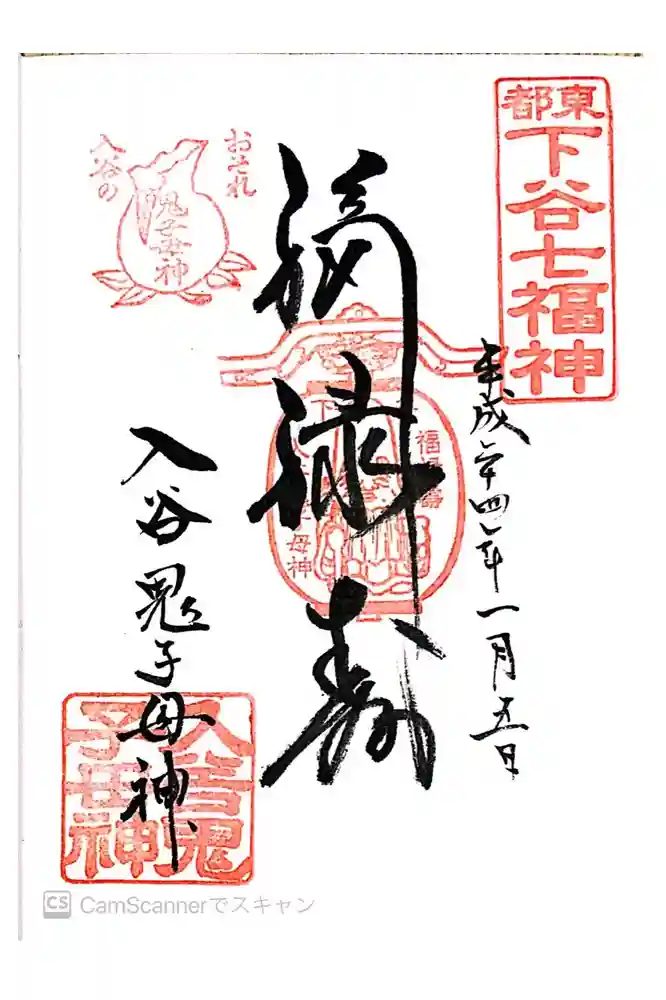 東都
下谷七福神
平成二十四年一月五日
福禄寿
おそれ
入谷の
鬼子母神
福禄壽
母神
入谷鬼子母神
入谷鬼
子母神
CS CamScannerでスキャン